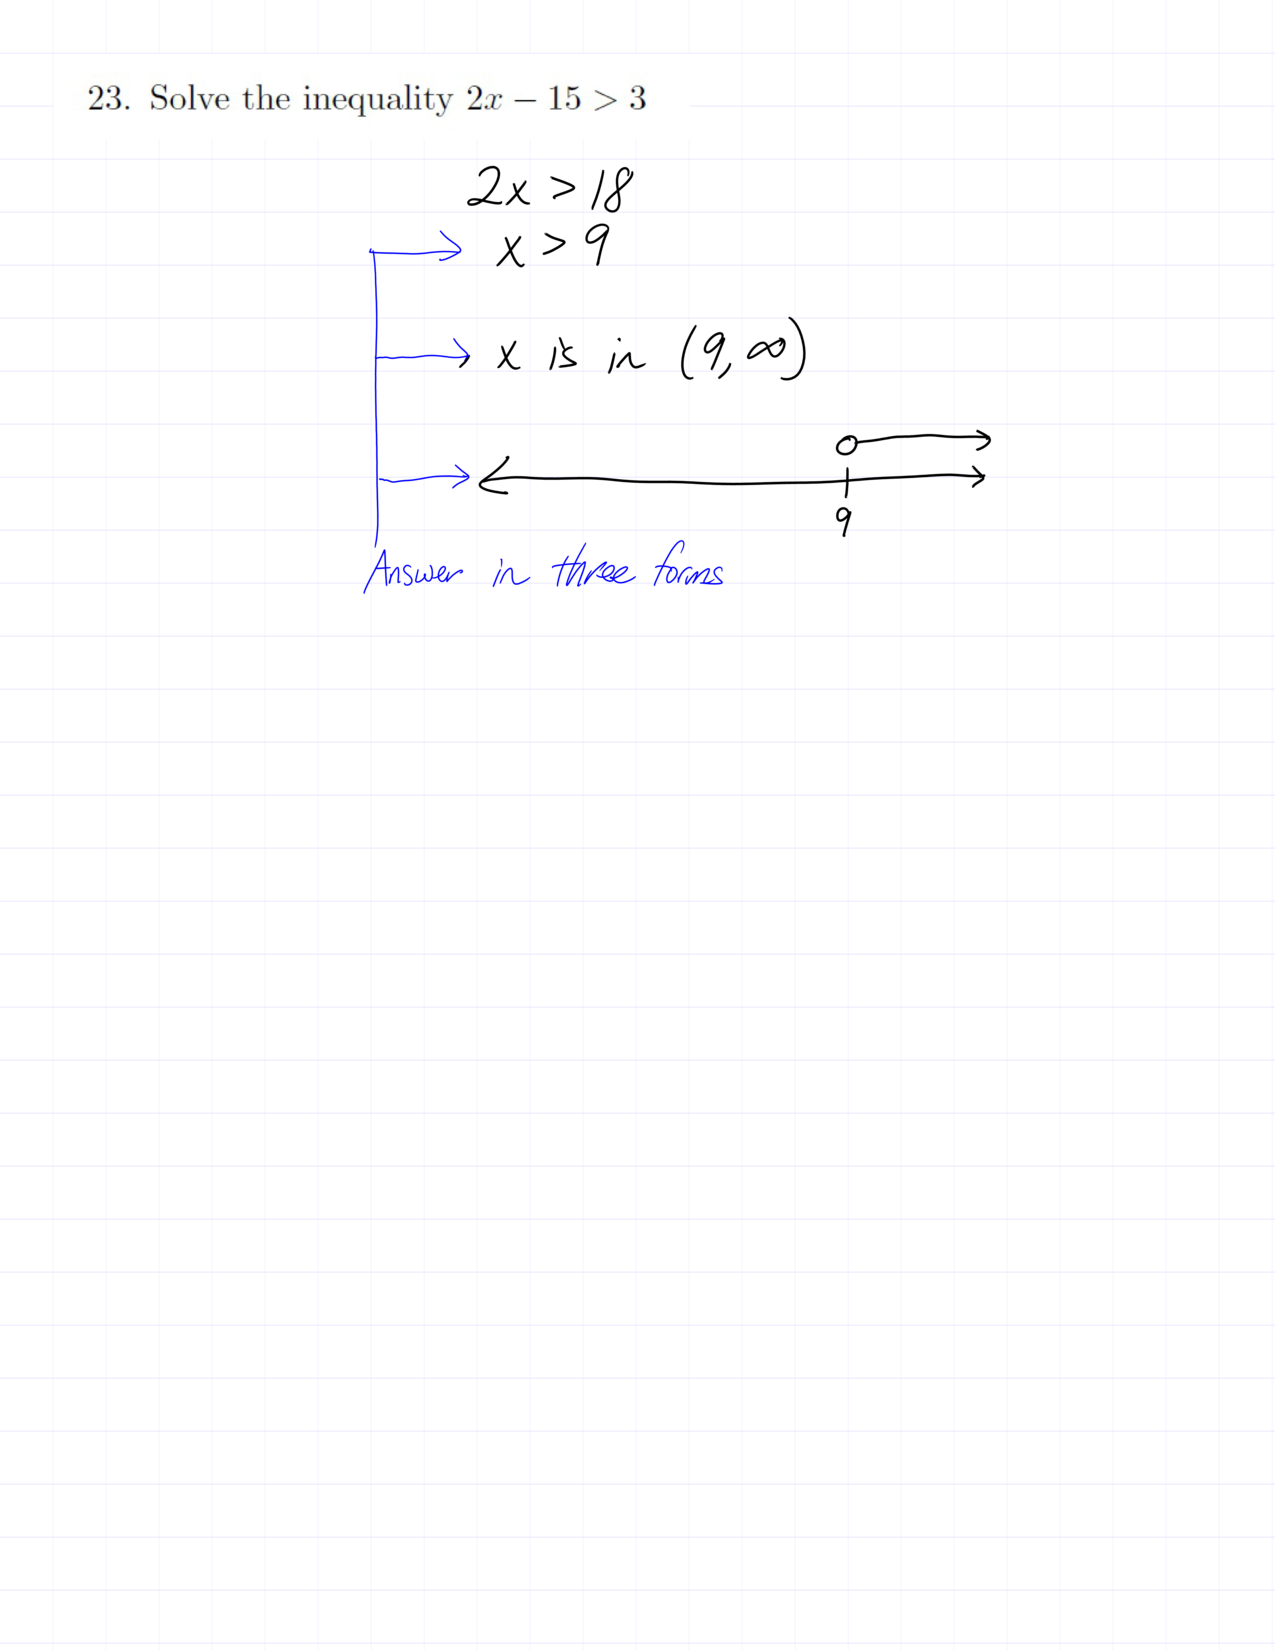 23. Solve the inequality 2x − 15 > 3
2x > 18
x > 9
x is in (9, ∞)
9
Answer in three forms